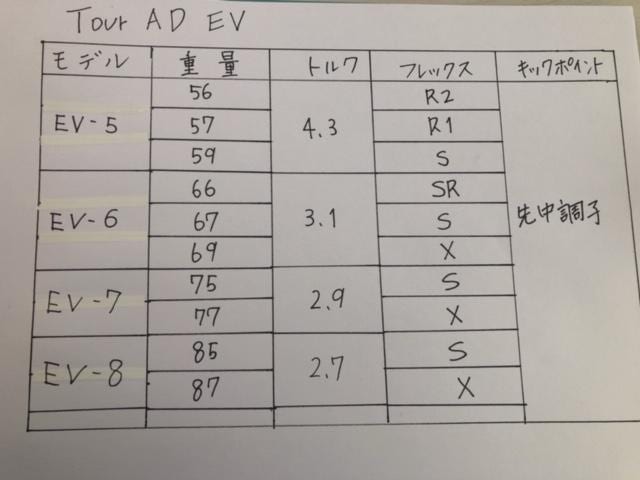 Tour AD EV
モデル 重量 トルク フレックス キックポイント
56 R2
EV-5 57 4.3 R1
59 S
66 SR
EV-6 67 3.1 S 先中調子
69 X
75 S
EV-7 2.9
77 X
85 S
EV-8 2.7
87 X